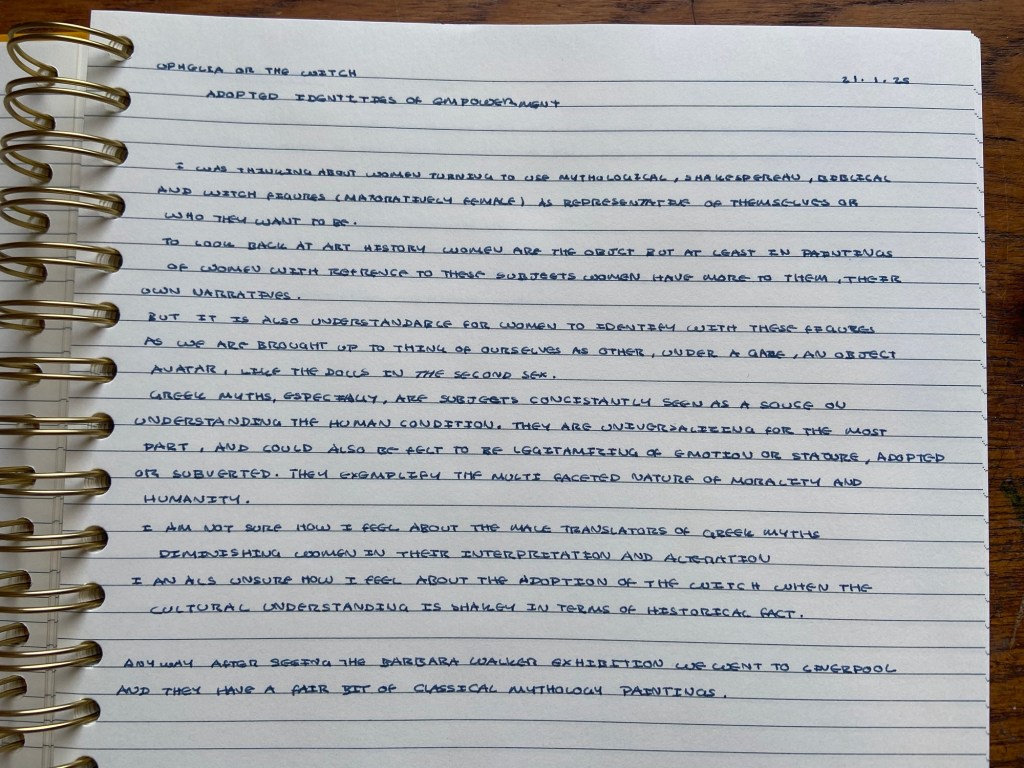 OPHELIA OR THE WITCH
21.1.25
ADOPTED IDENTITIES OF EMPOWERMENT
I WAS THINKING ABOUT WOMEN TURNING TO USE MYTHOLOGICAL, SHAKESPEREAN, BIBLICAL
AND WITCH FIGURES (MAJORATIVELY FEMALE) AS REPRESENTATIVE OF THEMSELVES OR
WHO THEY WANT TO BE.
TO LOOK BACK AT ART HISTORY WOMEN ARE THE OBJCT BUT AT LEAST IN PAINTINGS
OF WOMEN WITH REFRENCE TO THESE SUBJECTS WOMEN HAVE MORE TO THEM, THEIR
OWN NARRATIVES.
BUT IT IS ALSO UNDERSTANDABLE FOR WOMEN TO IDENTIFY WITH THESE FIGURES
AS WE ARE BROUGHT UP TO THING OF OURSELVES AS OTHER, UNDER A GAZE, AN OBJECT
AVATAR, LIKE THE DOLLS IN THE SECOND SEX.
GREEK MYTHS, ESPECIALLY, ARE SUBJECTS CONCISTANTLY SEEN AS A SOUCE ON
UNDERSTANDING THE HUMAN CONDITION. THEY ARE UNIVERSALIZING FOR THE MOST
PART, AND COULD ALSO BE FELT TO BE LEGITAMIZING OF EMOTION OR STATURE, ADOPTED
OR SUBVERTED. THEY EXEMPLIFY THE MULTI FACETED NATURE OF MORALITY AND
HUMANITY.
I AM NOT SURE HOW I FEEL ABOUT THE MALE TRANSLATORS OF GREEK MYTHS
DIMINISHING WOMEN IN THEIR INTERPRITATION AND ALTERATION
I AN ALS UNSURE HOW I FEEL ABOUT THE ADOPTION OF THE WITCH WHEN THE
CULTURAL UNDERSTANDING IS SHAKEY IN TERMS OF HISTORICAL FACT.
ANYWAY AFTER SEEING THE BARBARA WALKER EXHIBITION WE WENT TO LIVERPOOL
AND THEY HAVE A FAIR BIT OF CLASSICAL MYTHOLOGY PAINTINGS.